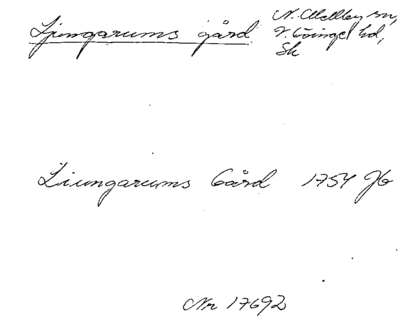 Ljungarums gård
N. Mellby sn,
V. Göinge hd,
Sk
Liungarums Gård 1754 Jb
Nr 17692